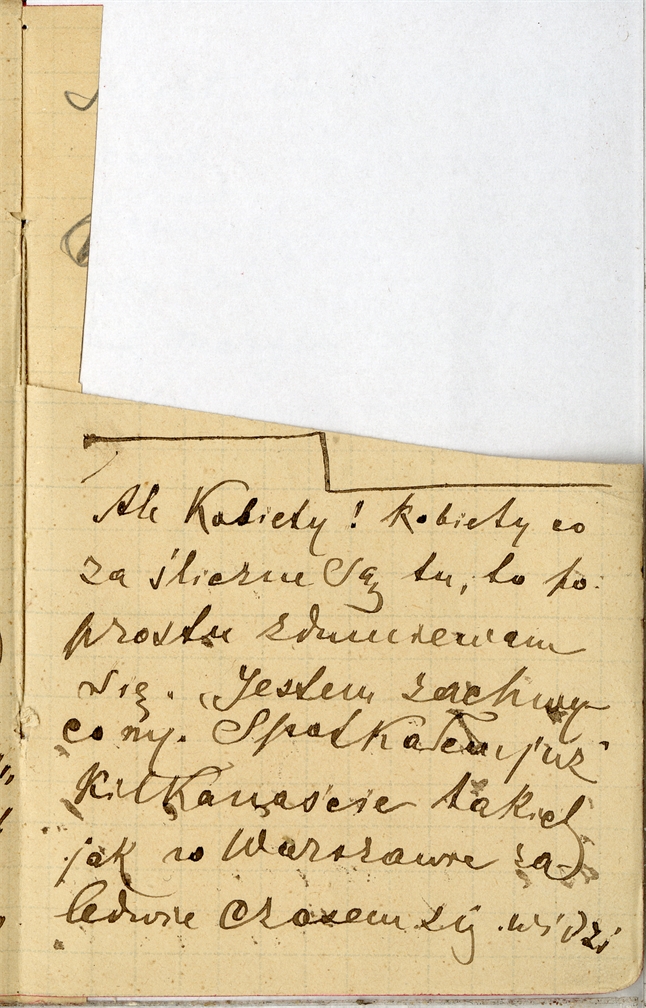 Ale Kobiety! kobiety co
za śliczne są tu, to po
prostu zdumiewam
się. Jestem zachwy
cony. Spotkałem już
kilkanaście takich
jak w Warszawie za
ledwie czasem się widzi